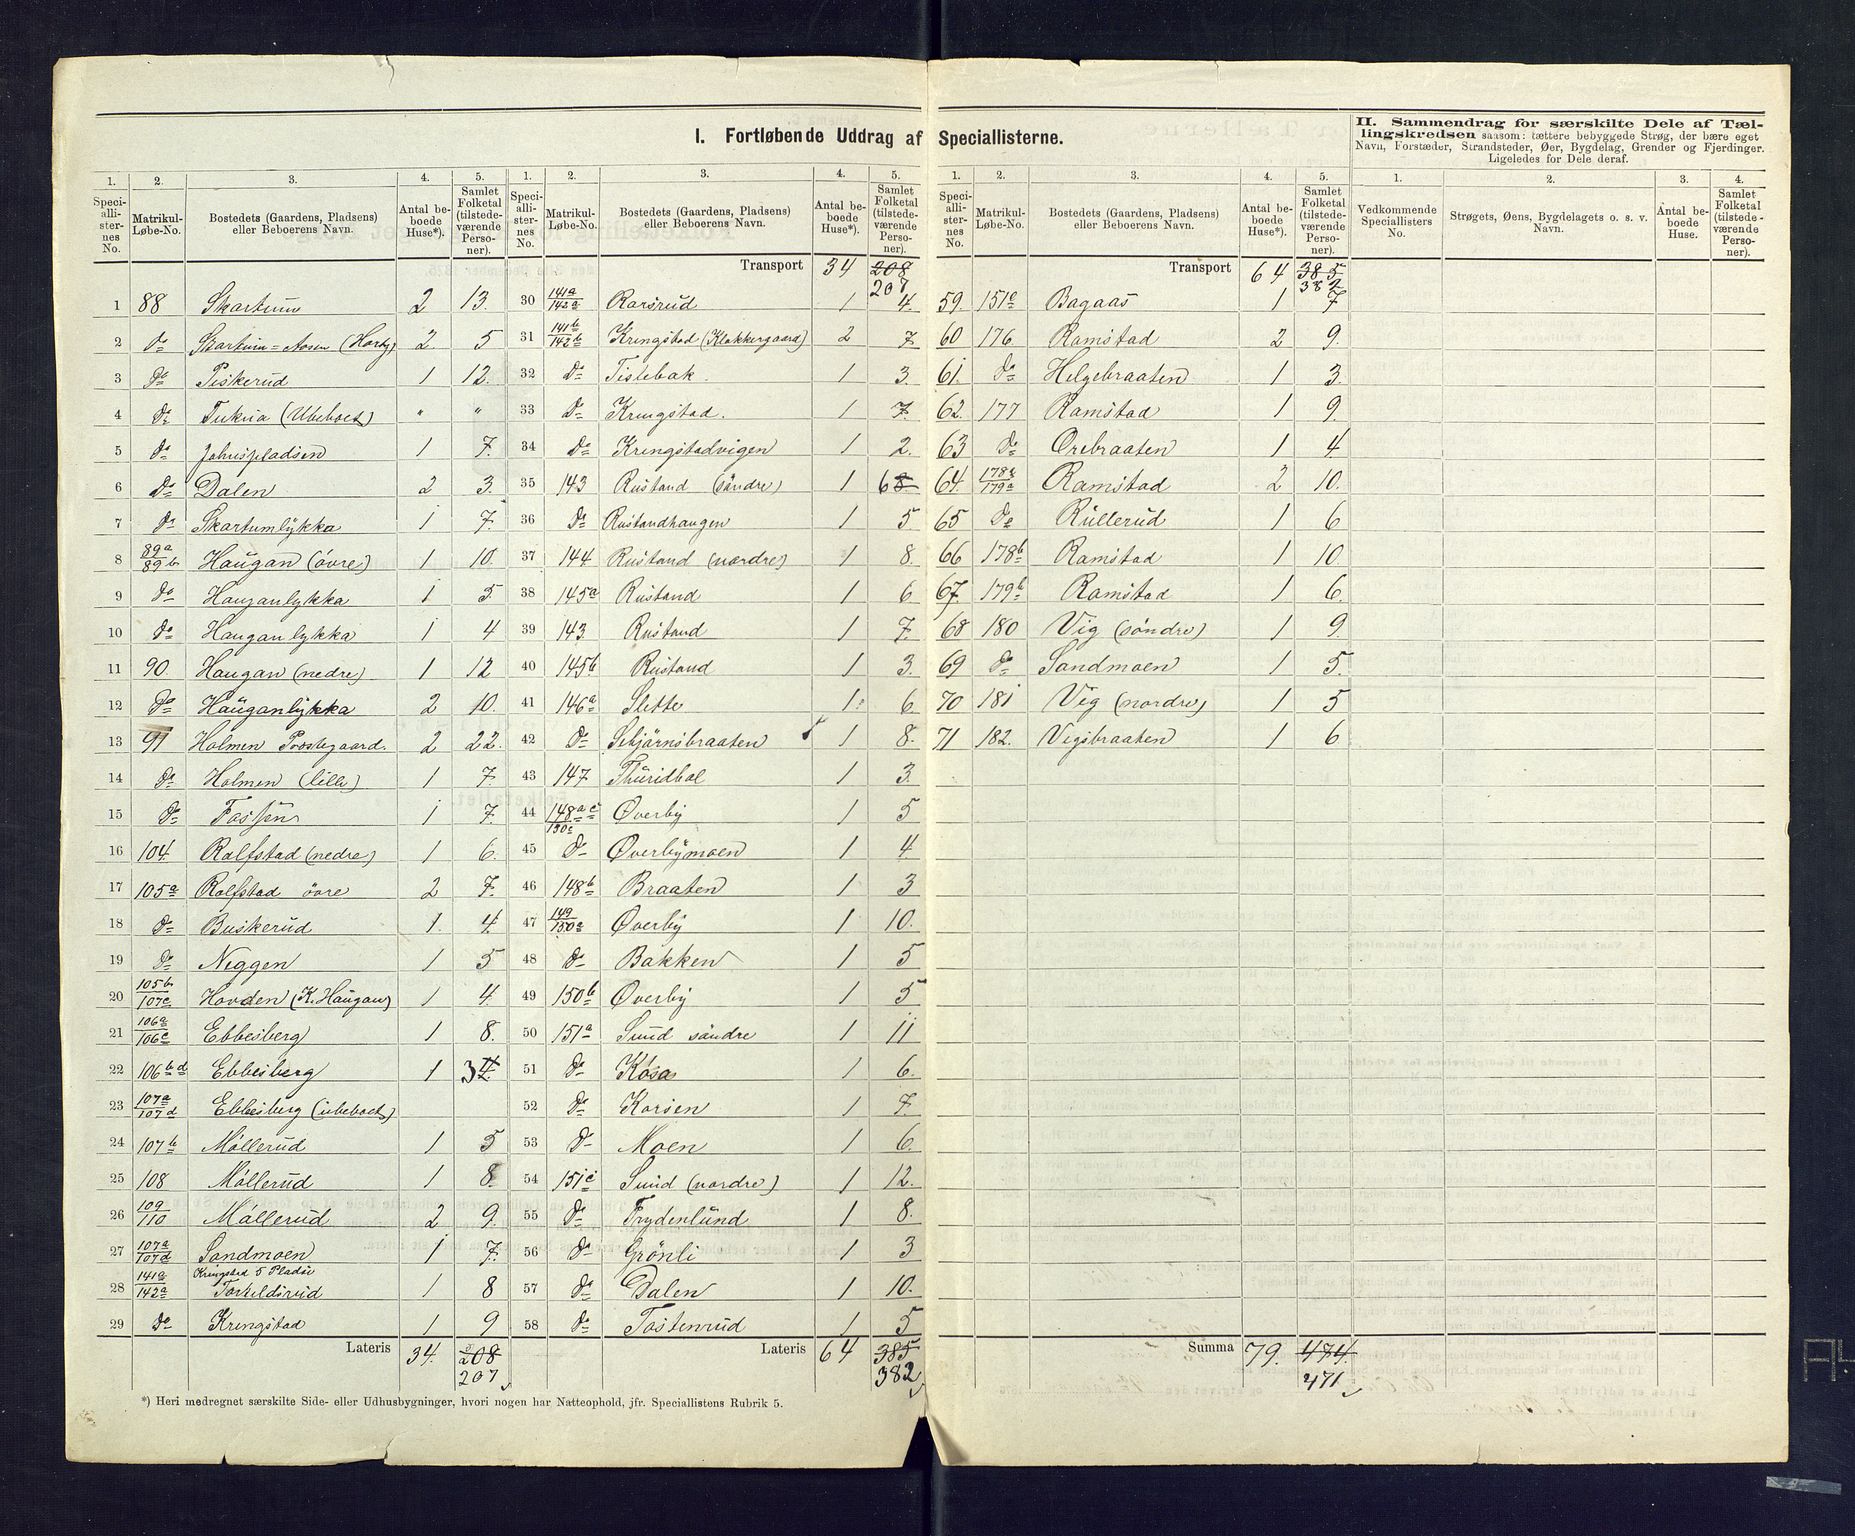 I. Fortløbende Uddrag af Speciallisterne.
II. Sammendrag for særskilte Dele af Tællingskredsen saasom: tættere bebyggede Strøg, der bære eget Navn, Forstæder, Strandsteder, Øer, Bygdelag, Grender og Fjerdinger. Ligeledes for Dele deraf.
1. 2. 3. 4. 5.
Speciallisternes No. Matrikul-Løbe-No. Bostedets (Gaardens, Pladsens) eller Beboerens Navn. Antal beboede Huse*). Samlet Folketal (tilstedeværende Personer).
1 88 Skartum 2 13.
2 do Skartum=Aasen (Horty) 2. 5
3 do Piskerud 1 12.
4 do Tukua (Ubeboet) " "
5 do Johnspladsen 1 7.
6 do Dalen 2 3.
7 do Skartumlykka 1 7.
8 89a/89b Haugan (övre) 1 10.
9 do Hauganlykka 1 5
10 do Hauganlykka 1 4
11 90. Haugan (nedre) 1 12
12 do Hauganlykka 2 10.
13 91 Holmen Prostegaard. 2 22.
14 do Holmen (lille) 1 7
15 do Fossen 1 7.
16 104. Rolfstad (nedre) 1 6.
17 105a Rolfstad övre 2 7.
18 do Buskerud 1. 4.
19 do Neggen 1 5
20 105b/107c Hovden (K. Haugan) 1 4.
21 106a/106c Ebbesberg 1 8.
22 106b d Ebbesberg 1 3
23 107a/107d Ebbesberg (ubeboet)
24 107b Möllerud 1 5
25 108 Möllerud 1 8
26 109/110 Möllerud 2 9.
27 107a/107d Sandmoen 1 7.
28 141a/142a Kringstad 5 Pladse Torkildsrud 1 8
29 do Kringstad 1 9
Lateris 34. 208
207
*) Heri medregnet særskilte Side- eller Udhusbygninger, hvori nogen har Natteophold, jfr. Speciallistens Rubrik 5.
1. 2. 3. 4. 5.
Speciallisternes No. Matrikul-Løbe-No. Bostedets (Gaardens, Pladsens) eller Beboerens Navn. Antal beboede Huse*). Samlet Folketal (tilstedeværende Personer).
Transport 34 208
207
30 141a/142a Rorsrud 1 4.
31 141b/142b Kringstad (Klokkergaard) 2 7.
32 do Tistebak. 1 3.
33 do Kringstad. 1 7.
34 do Kringstadvigen 1 2.
35 143 Rustand (söndre) 1 6
36 do Rustandhaugen 1 5.
37 144 Rustand (nordre) 1 8.
38 145a Rustand 1 6
39 143 Rustand 1 7.
40 145b Rustand 1 3.
41 146a Slette 1 6.
42 do Stjörnsbraaten 1 8.
43 147 Thuridbøl 1 3.
44 148a c/150c Øverby 1 5
45 do Øverbymoen 1 4
46 148b Braaten 1 3
47 149/150a Øverby 1 10.
48 do Bakken 1 5
49 150b Øverby 1 5
50 151a Sund söndre 1 11
51 do Kösa 1 6.
52 do Korsen 1 7
53 do Moen 1 6.
54 151c Sund (nordre) 1 12.
55 do Frydenlund 1 8.
56 do Grönli 1 3
57 do Dalen 1 10.
58 do Tostenrud 1 5
Lateris 64 385
382
1. 2. 3. 4. 5.
Speciallisternes No. Matrikul-Løbe-No. Bostedets (Gaardens, Pladsens) eller Beboerens Navn. Antal beboede Huse*). Samlet Folketal (tilstedeværende Personer).
Transport 64 385
382
59. 151c Bagaas 1 7
60 176. Ramstad 2 9.
61. do Helgebraaten 1 3.
62. 177 Ramstad 1 9.
63 do Orebraaten 1 4
64. 178a/179a Ramstad 2 10.
65 do Rullerud 1 6
66 178b Ramstad 1 10
67. 179b Ramstad 1 6.
68 180 Vig (söndre) 1 9.
69 do Sandmoen 1 5.
70 181 Vig (nordre) 1 5
71 182. Vigsbraaten 1 6
Summa 79. 474.
471
1. 2. 3. 4.
Vedkommende Speciallisters No. Strøgets, Øens, Bygdelagets o. s. v. Navn. Antal beboede Huse. Samlet Folketal (tilstedeværende Personer).